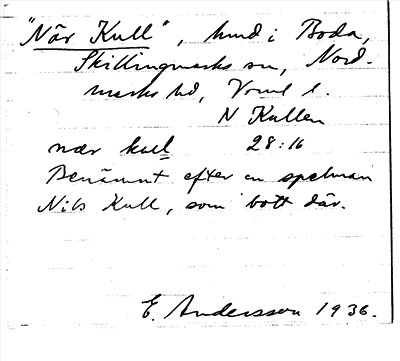 "När Kull", hmd i Boda,
Skillingmarks sn, Nord-
marks hd, Vrml l.
N Kullen
nær kul 28:16
Benämnt efter en spelman
Nils Kull, som bott där.
E. Andersson 1936.